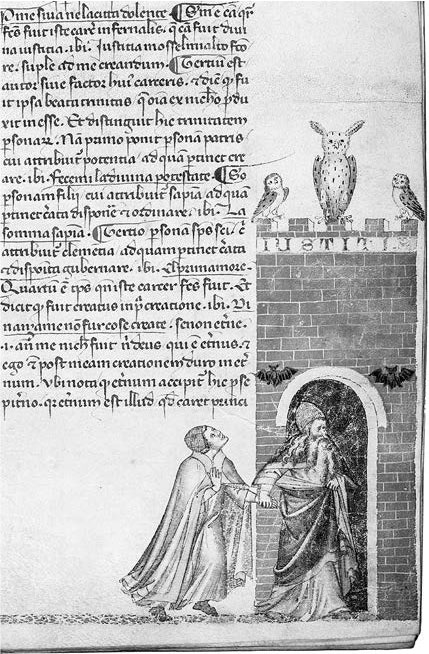 P me si va nela citta dolente. ¶ Sm̄ ē cā qr̄
fc̄s fuit iste carcer infernalis. q̄ cā fuit diui
na iustitia. ibi. Iustitia mosse l mio alto fc̄o
re. suple ad me creandum. ¶ Tertiū est
autor siue factor huiꝰ carceris. ⁊ dicit q̄ fu
it ipsa beata trinitas. q̄ oīa ex nich̄o ꝓdu
xit in esse. Et distinguit hic trinitatem
ꝑsonaꝝ. Nā primo ponit ꝑsonā patris
cui attribuit᷑ potentia. ad quā ꝑtinet cre
are. ibi. Fecemi la diuina potestate. ¶ So
ꝑsonam filii cui attribuit᷑ sapīa. ad quā
ꝑtinet c̄ata disponē ⁊ ordinare. ibi. La
somma sapīa. ¶ Tertio ꝑsonā sp̄s sc̄i. c̄
attribuit᷑ clemētia. ad quam ꝑtinet c̄ata
⁊ disposita gubernare. ibi. El primo amore.
Quartū ē tp̄s qn̄ iste carcer fc̄s fuit. Et
dicit q̄ fuit creatus in pͥ creatione. ibi. Di
nançi a me non fur cose create. Se non et̄ne.
.i. an̄ me nichil fuit n̄ deus qui ē et̄nus. ⁊
ego ⁊ post meam creationem duro in et̄
num. Vbi nota q̄ et̄num accipit᷑ hic ꝑ se
pit̄no. q̄ et̄num est illud qd̄ caret princi
IUSTITI